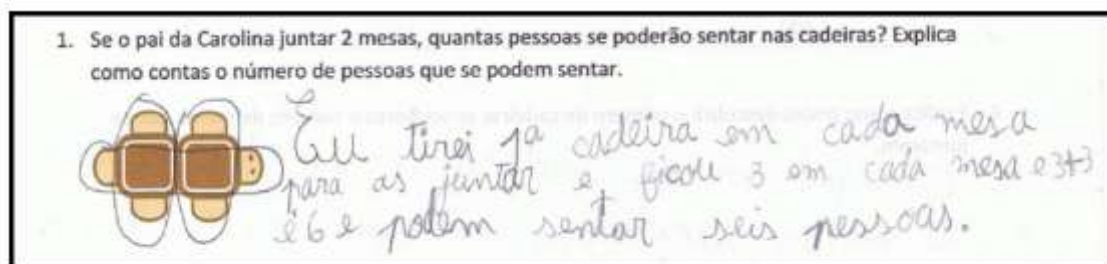 1. Se o pai da Carolina juntar 2 mesas, quantas pessoas se poderão sentar nas cadeiras? Explica
como contas o número de pessoas que se podem sentar.
Eu tirei 1ª cadeira em cada mesa
para as juntar e ficou 3 em cada mesa e 3+3
é 6 e podem sentar seis pessoas.